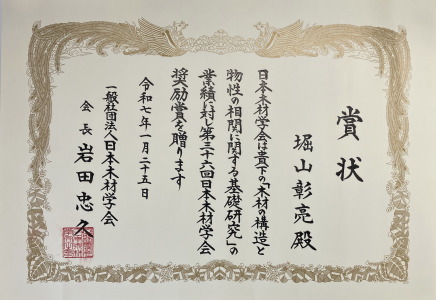 賞状
堀山彰亮殿
日本木材学会は貴下の「木材の構造と
物性の相関に関する基礎研究」の
業績に対し第三十六回日本木材学会
奨励賞を贈ります
令和七年一月二十五日
一般社団法人日本木材学会
会長 岩田忠久